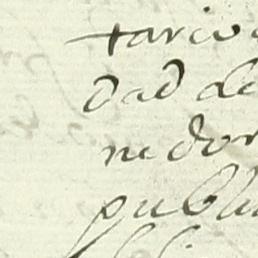 tario
dad de
nedor
publi